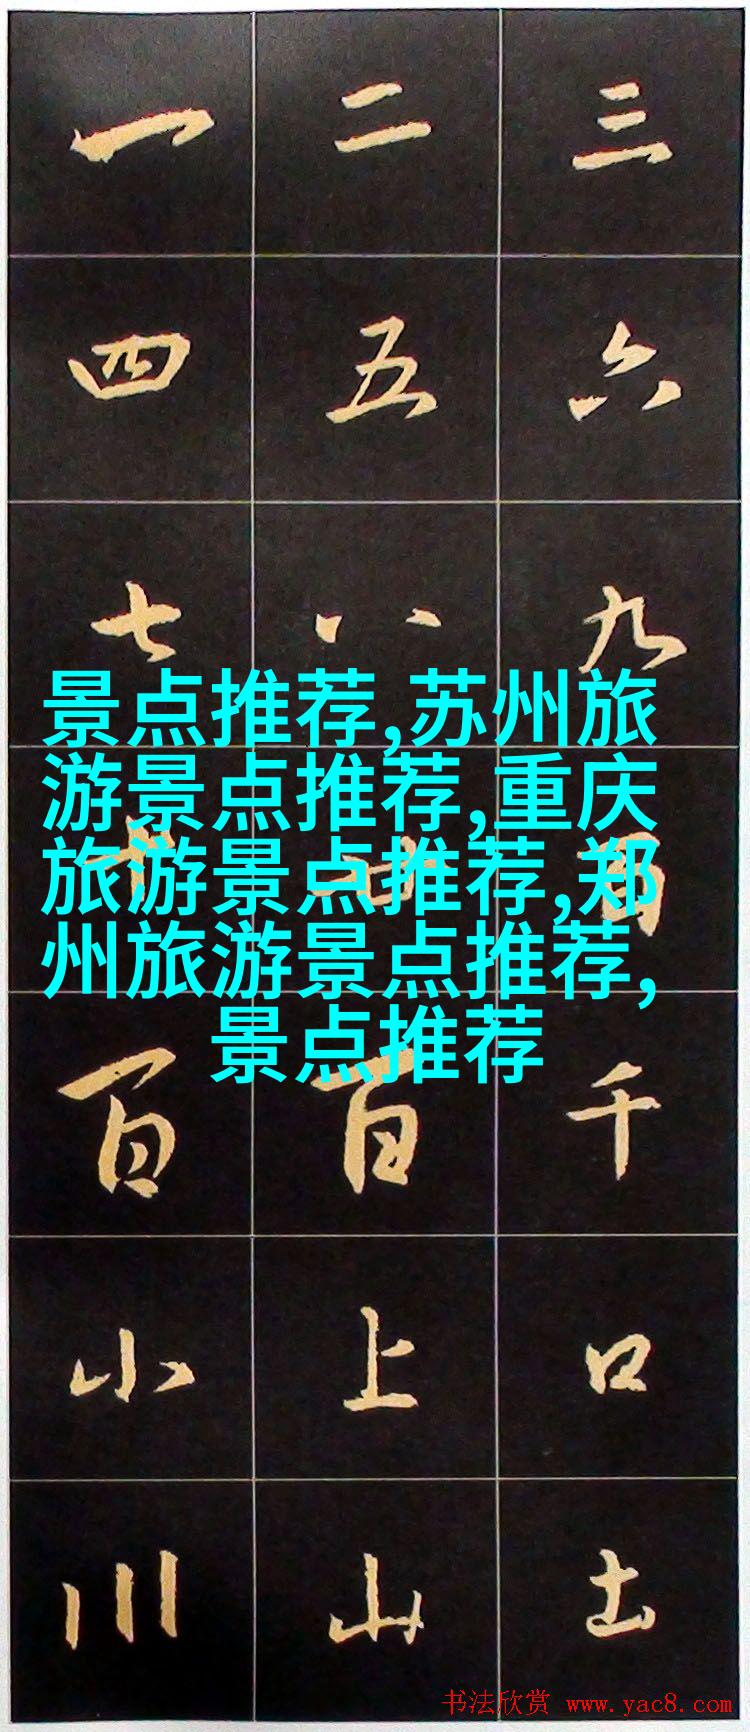 一 二 三
四 五 六
七 八 九
景点推荐,苏州旅
游景点推荐,重庆
旅游景点推荐,郑
州旅游景点推荐,
景点推荐
百 百 千
小 上 口
川 山 土
书法欣赏 www.yac8.com